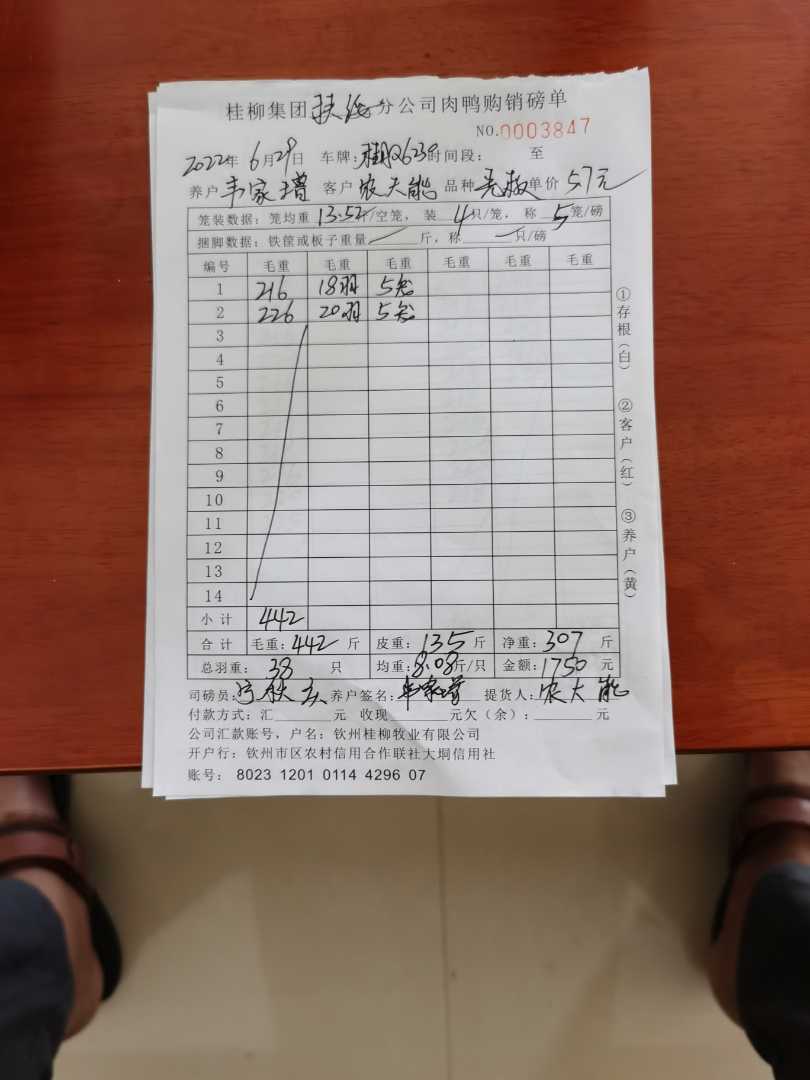 桂柳集团扶绥分公司肉鸭购销磅单
NO.0003847
2022年 6月29日 车牌: 时间段: 至
养户韦家增 客户农大能 品种 单价5.7元
笼装数据:笼均重13.5斤/空笼,装4只/笼,称5笼/磅
捆脚数据:铁筐或板子重量 斤,称 只/磅
编号 毛重 毛重 毛重 毛重 毛重 毛重
1 216 18羽 5笼
2 226 20羽 5笼
3
4
5
6
7
8
9
10
11
12
13
14
小计 442
合计 毛重:442斤 皮重:135斤 净重:307斤
总羽重:38只 均重:8.08斤/只 金额:1750元
司磅员: 养户签名:韦家增 提货人:农大能
付款方式:汇 元 收现 元欠(余): 元
公司汇款账号,户名:钦州桂柳牧业有限公司
开户行:钦州市区农村信用合作联社大垌信用社
账号: 8023 1201 0114 4296 07
①存根(白) ②客户(红) ③养户(黄)